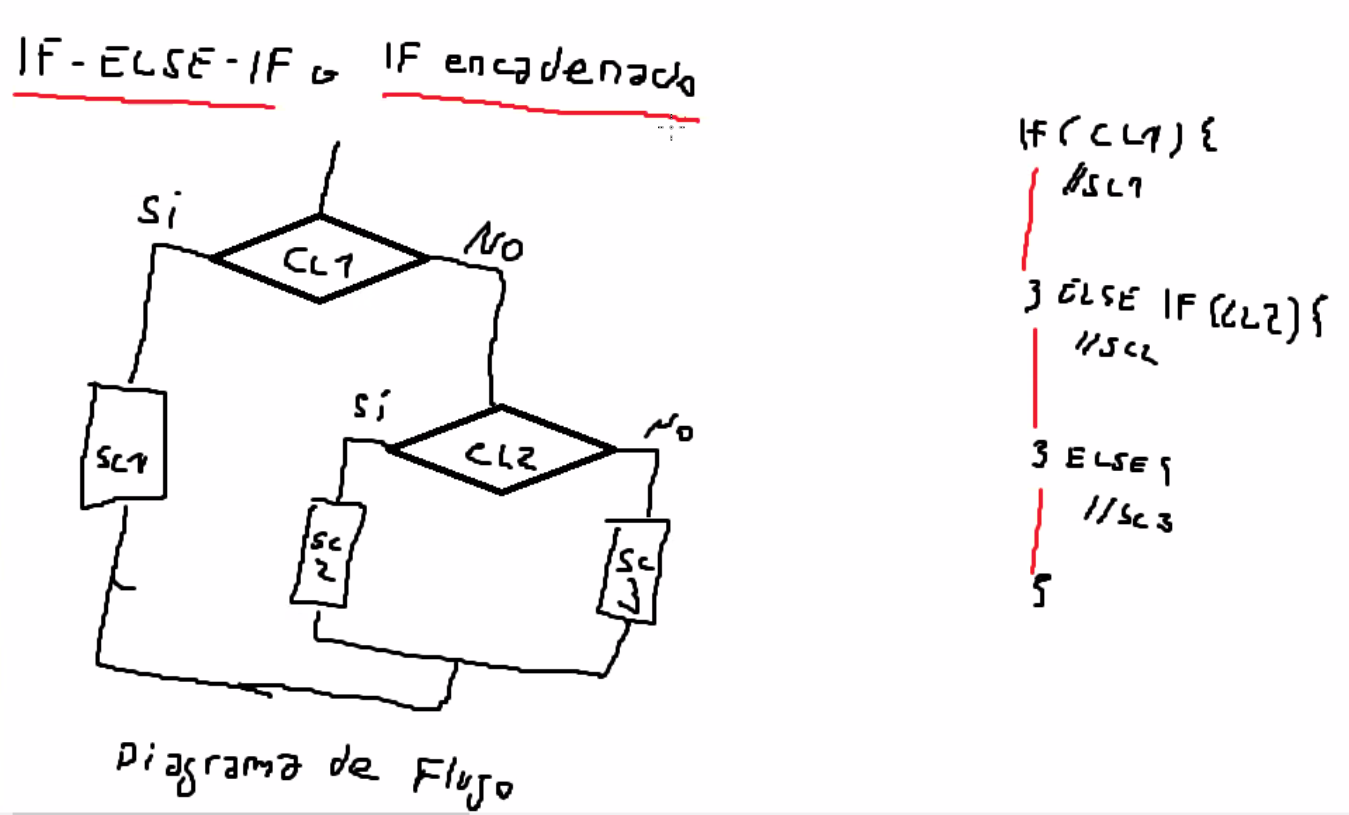 IF-ELSE-IF o IF encadenado
Si
CL1
No
SC1
Si
CL2
No
SC
2
SC
3
Diagrama de Flujo
IF(CL1){
//SC1
} ELSE IF(CL2){
//SC2
} ELSE{
//SC3
}